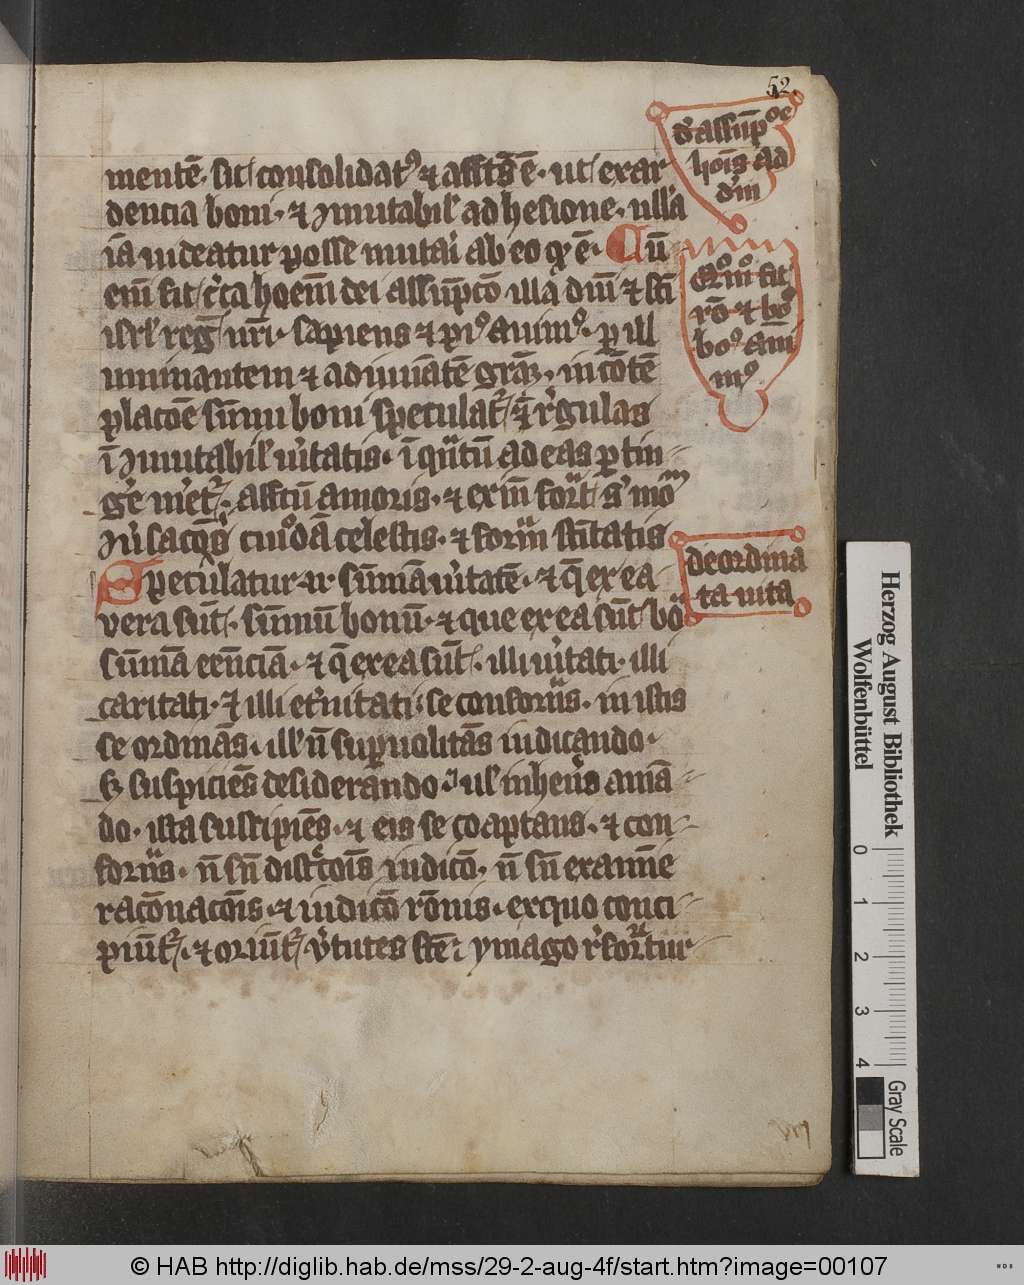 52.
mentē· sit consolidat᷒ ⁊ affts̄ ē· ut exar
dencia boni· ⁊ Inmutabil' adhesione· ulla
iā uideatur posse mutai ab eo qͥ ē· Cū
eni͞ fit c'ca ho͞em dei assu͞pcō illa diu͞ ⁊ sc̄i
isrl' reg͞ nr̄i· sapiens ⁊ pi᷒ anim᷒· p ill
uminantem ⁊ adiuuātē grām· in cōtē
placōe sūmi boni speculat᷒ ⁊ r'gulas
ī Inmutabil' u'itatis· īqn̄tū ad eas ptin
ge' mēt'· affctū amoris· ⁊
celestis· ⁊ formā sc̄itatis
Speculatur ū sūmā u'itatē· ⁊ q̄ ex ea
vera sūt· sūmū bonū· ⁊ que ex ea sūt bōa
sūmā eēnciā· ⁊ q̄ ex ea sūt· illi u'itati· illi
caritati· ⁊ illi et'nitati· se conformās· in istis
se ordinās· ill' n̄ supuolitās iudicando·
sꝫ suspiciēs desiderando· ul' inherēs amā
do· ista suscipiēs· ⁊ eis se coaptans· ⁊ con
formās· n̄ sn̄ discrecōis iudicō· n̄ sn̄ examīe
racōnacōnis· ⁊ iudicō rōnis· ex quo conci
piūt᷒· ⁊ oriūt᷒ v'tutes sc̄e· ymago r'formatur
d' assūpcōe
hoīs ad
dm̄
bo᷒ ani
m᷒
de ordina
ta uita
Herzog August Bibliothek
Wolfenbüttel
0 1 2 3 4
Gray Scale
© HAB http://diglib.hab.de/mss/29-2-aug-4f/start.htm?image=00107